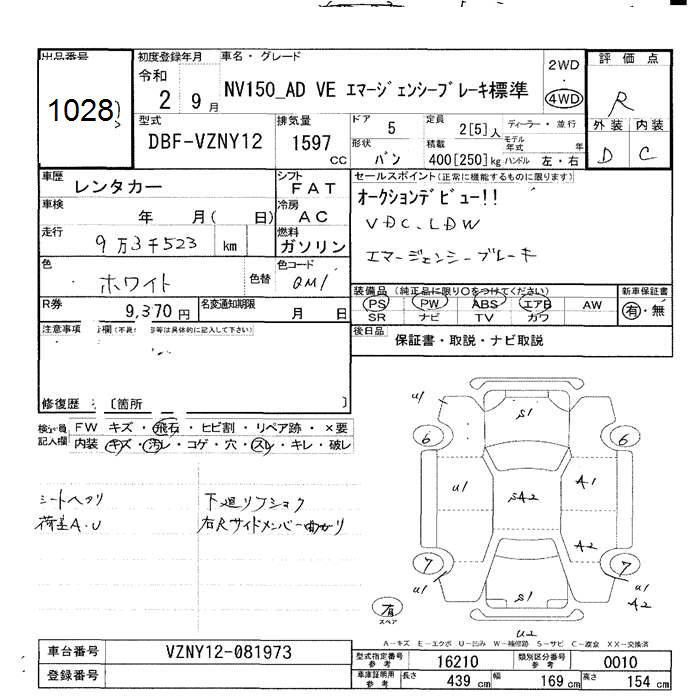 出品番号
1028
初度登録年月
令和
2 9月
車名・グレード
NV150_AD VE エマージェンシーブレーキ標準
2WD
・
4WD
評価点
R
外装 内装
D C
型式
DBF-VZNY12
排気量
1597 CC
ドア 5
形状 バン
定員 2[5]人
積載 400[250]kg
ディーラー・並行
モデル年式 年
ハンドル 左・右
車歴 レンタカー
車検 年 月( 日)
走行 9万3千523 km
色 ホワイト 色替
シフト FAT
冷房 AC
燃料 ガソリン
色コード QM1
R券 9,370円
名変通知期限 月 日
セールスポイント(正常に機能するものに限ります)
オークションデビュー!!
VDC.LDW
エマージェンシーブレーキ
装備品(純正品に限り○をつけてください)
PS PW ABS エアB AW
SR ナビ TV カワ
新車保証書
有・無
後日品 保証書・取説・ナビ取説
注意事項 欄
等は具体的に記入して下さい)
修復歴 〔箇所 〕
検 員 記入欄
FW キズ・飛石・ヒビ割・リペア跡・×要
内装 キズ・汚レ・コゲ・穴・スレ・キレ・破レ
シートヘタリ
荷室A.U
下廻リサビ
右Rサイドメンバー曲がり
u1 S1
6 6
u1 SA2 A1
A2
7 7
u1 S1 u1
A2
u2
有
スペア
A-キズ E-エクボ U-凹み W-補修跡 S-サビ C-腐食 XX-交換済
車台番号 VZNY12-081973
登録番号
型式指定番号 参考 16210
類別区分番号 参考 0010
車庫証明用 参考 長さ 439 cm 幅 169 cm 高さ 154 cm